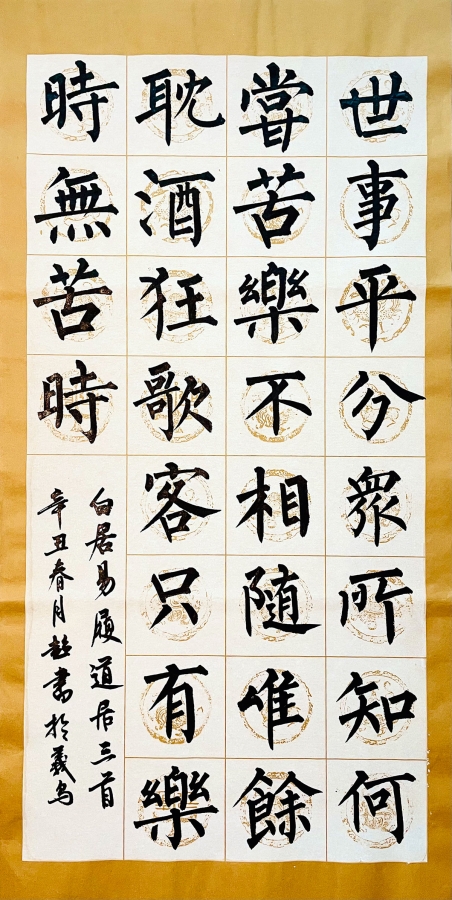 世事平分眾所知何
嘗苦樂不相随唯餘
耽酒狂歌客只有樂
時無苦時
白居易履道居三首
辛丑春月赵書於義乌